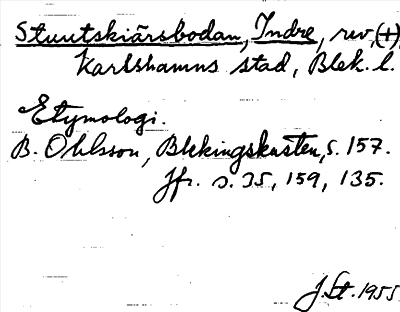 Stuutskiärsbodan, Indre, rev, (+),
Karlshamns stad, Blek. l.
Etymologi.
B. Ohlsson, Blekingskusten, s. 157.
Jfr. s. 35, 159, 135.
J. St. 1955.